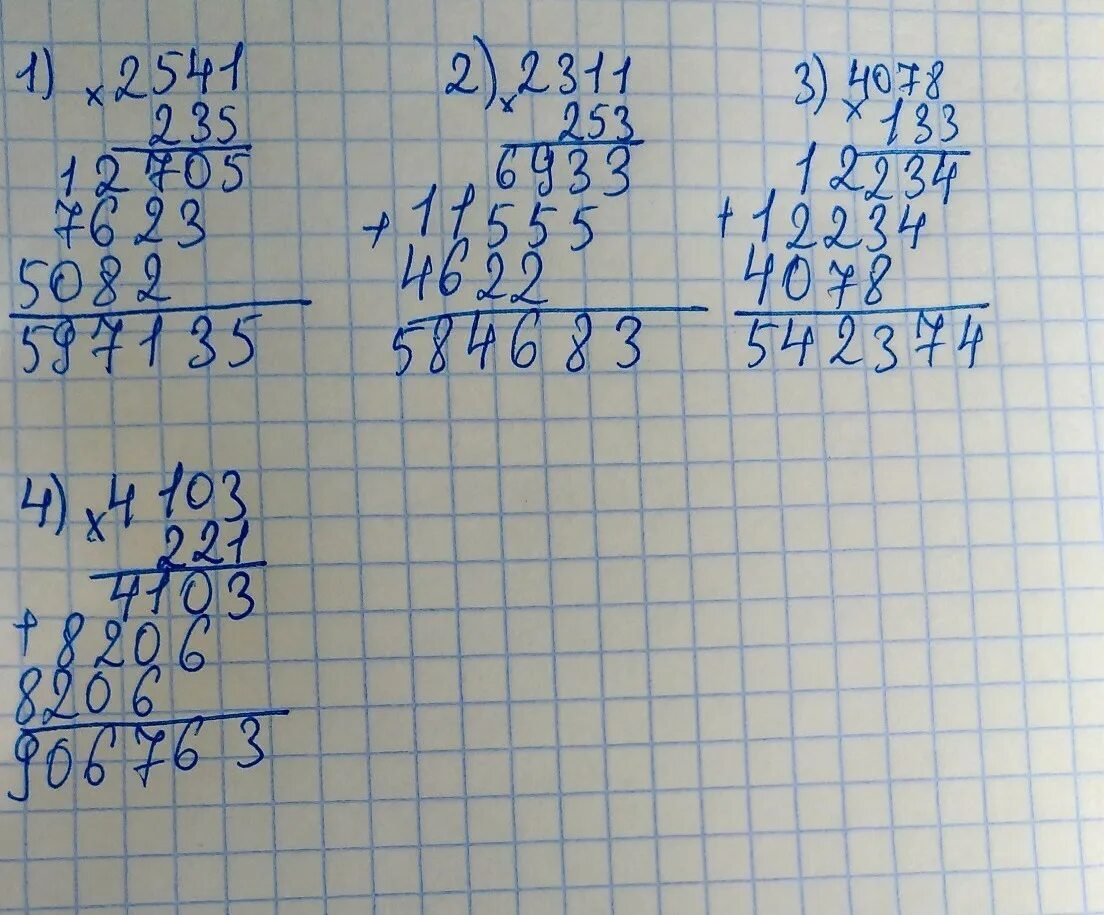 1) × 2541
235
12705
7623
5082
597135
2) × 2311
253
6933
+ 11555
4622
584683
3) × 4078
133
12234
+ 12234
4078
542374
4) × 4103
221
4103
+ 8206
8206
906763